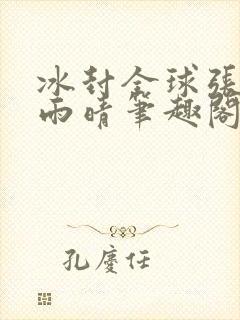 冰封全球張
雨晴筆趣閣
孔慶任